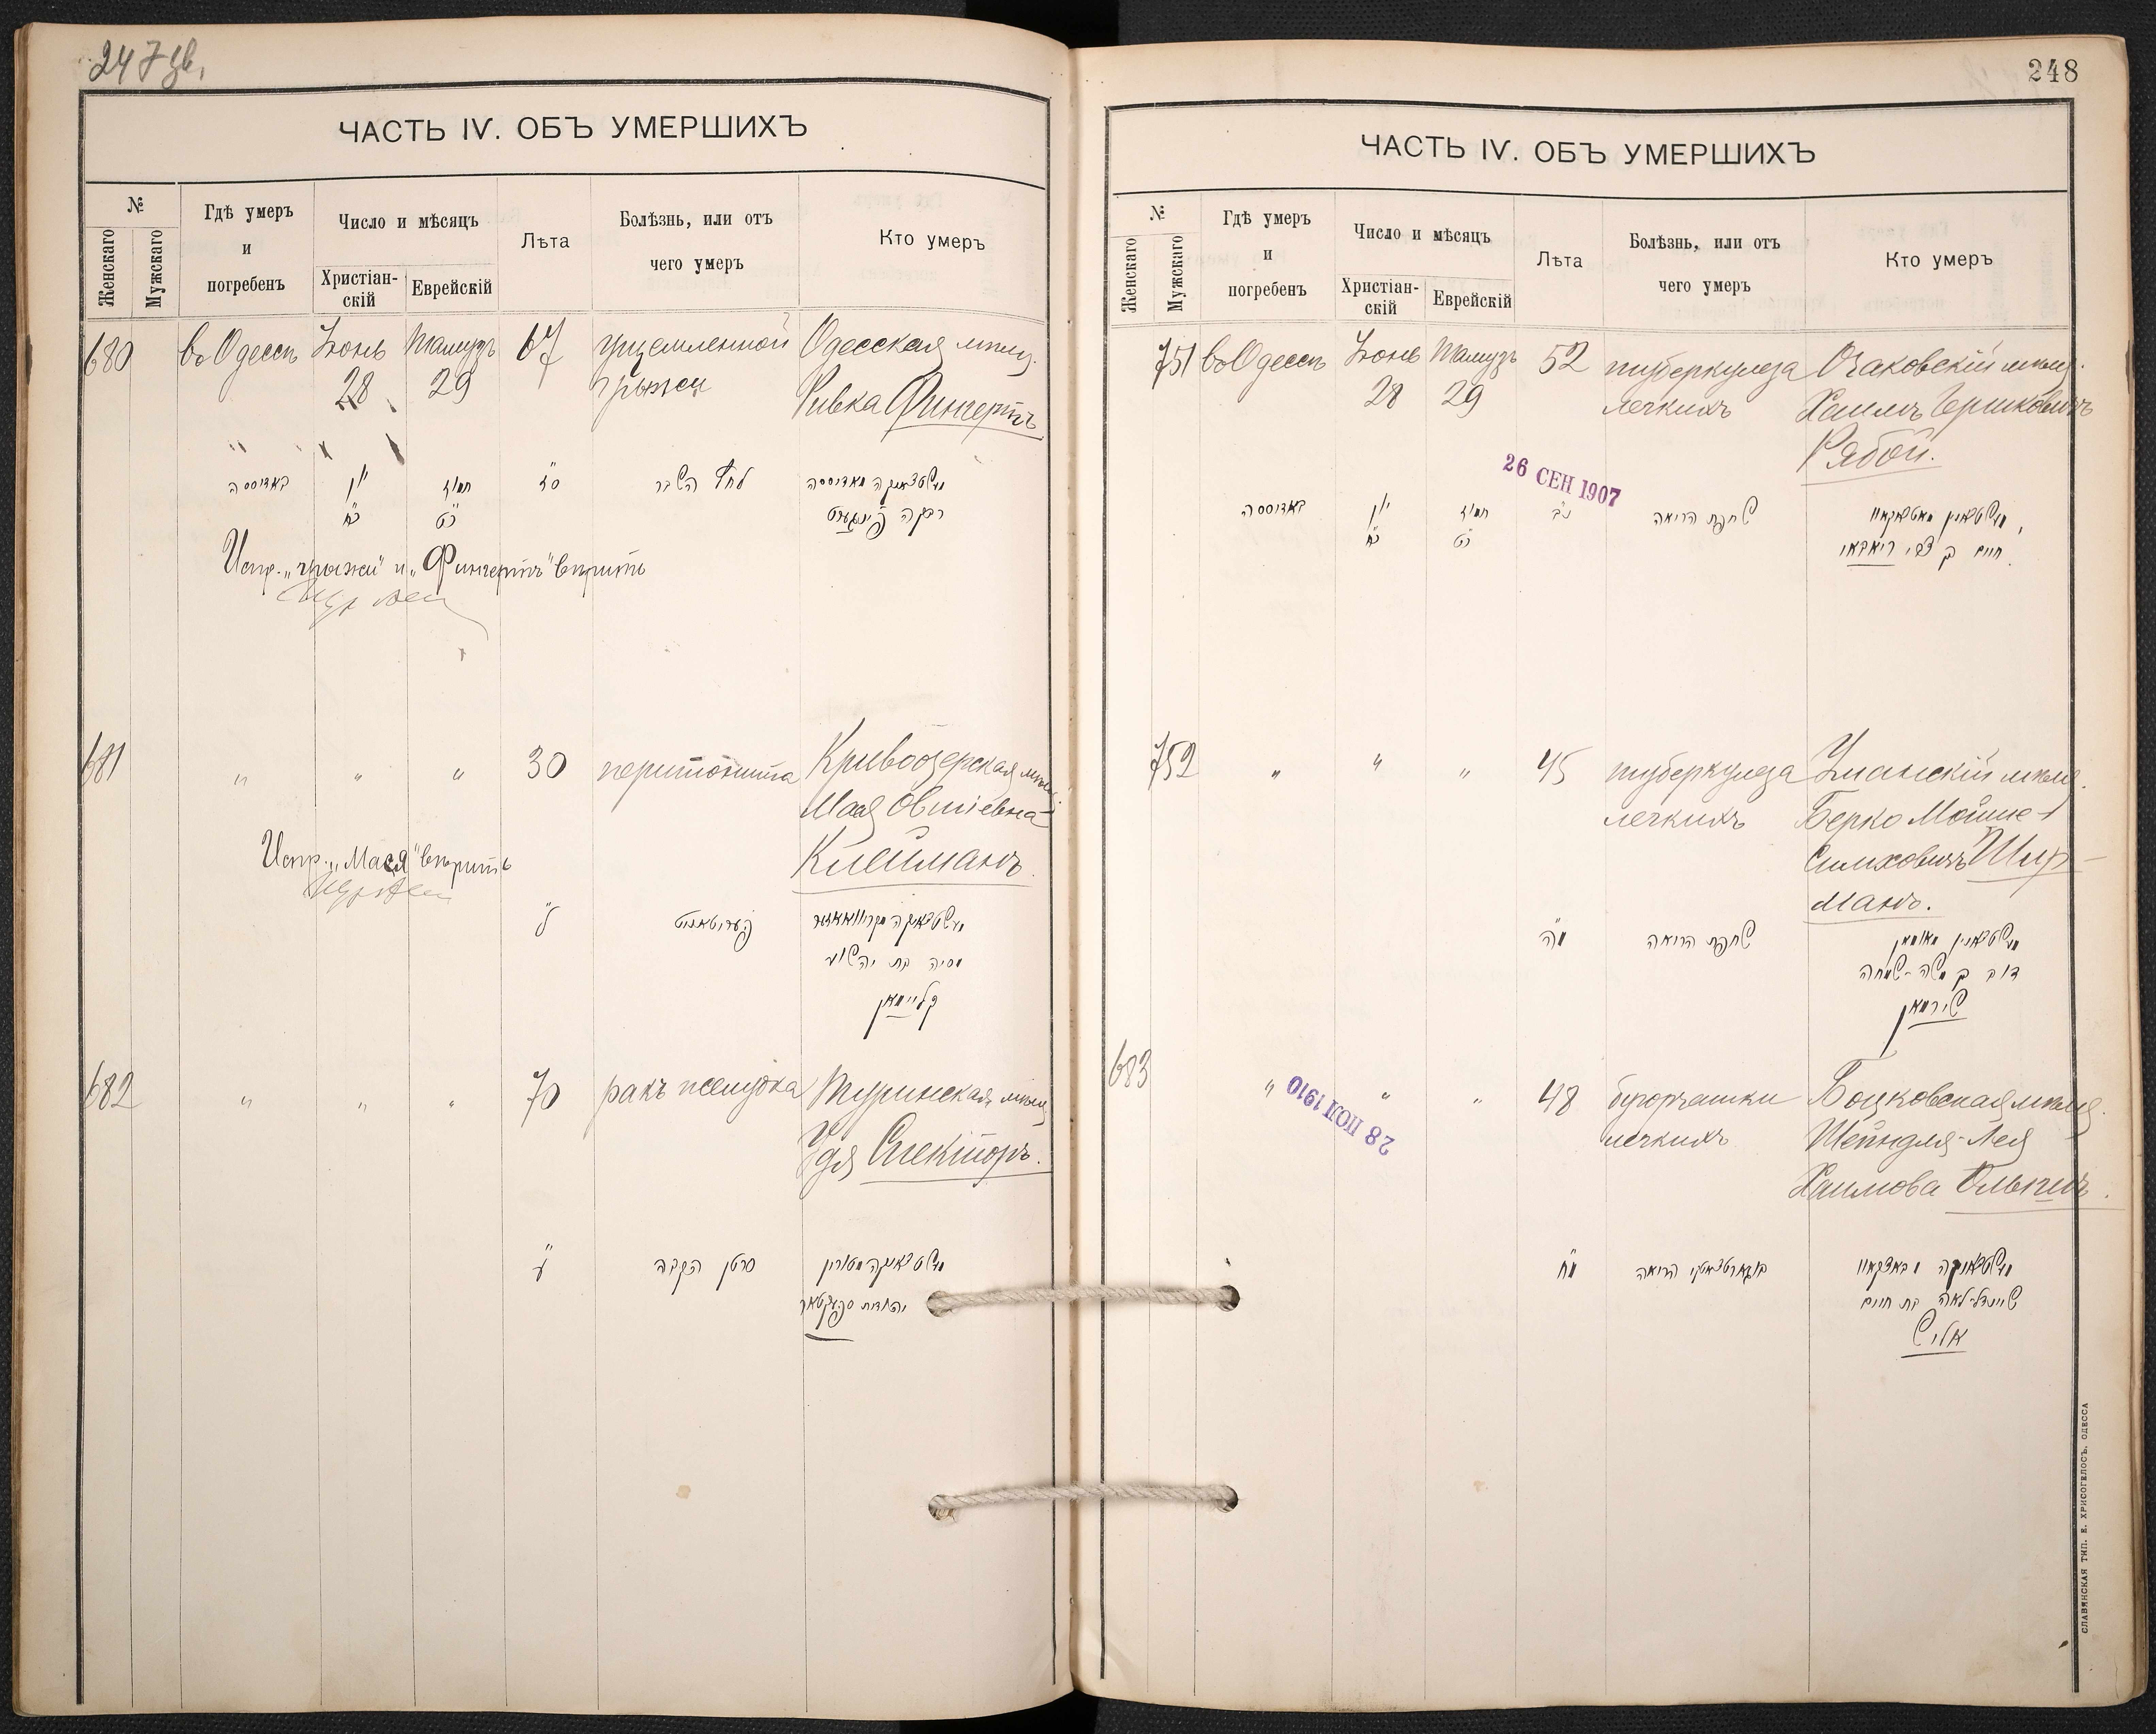 247 об.
ЧАСТЬ IV. ОБЪ УМЕРШИХЪ
№
Женскаго
Мужскаго
Гдѣ умеръ
и
погребенъ
Число и мѣсяцъ
Христіан-
скій
Еврейскій
Лѣта
Болѣзнь, или отъ
чего умеръ
Кто умеръ
680 въ Одессѣ Іюнь Тамузъ 67 ущемленной Одесская мѣщ.
28 29 грыжи Ривка Фингертъ
באדוססה יון תמוז סז לחץ השבר מעשטצאנקה מאדוססה
כח כט רבקה פינגערט
Испр. „грыжи" и „Фингертъ" вѣрить
681 " " " 30 перитонита Кривоозерская мѣщ.
Мася Овшіевна
Клейманъ
Испр. „Мася" вѣрить
ל פעריטאניט
מסיה בת יהשוע
קליימאן
682 " " " 70 ракъ желудка Туринская мѣщ.
Удя Спекторъ.
ע סרטן הקבה מעשטצאנקה מטורין
יהודית ספעקטאר
248
ЧАСТЬ IV. ОБЪ УМЕРШИХЪ
№
Женскаго
Мужскаго
Гдѣ умеръ
и
погребенъ
Число и мѣсяцъ
Христіан-
скій
Еврейскій
Лѣта
Болѣзнь, или отъ
чего умеръ
Кто умеръ
751 въ Одессѣ Іюнь Тамузъ 52 туберкулеза Очаковскій мѣщ.
28 29 легкихъ Хаимъ Гершковичъ
Рябой.
26 СЕН 1907
באדוססה יון תמוז נב שחפת הריאה מעשטצאנין מאטשאקאוו
כח כט חיים בן צבי ריאבאי
752 " " " 45 туберкулеза Уманскій мѣщ.
легкихъ Берко Мойше-
Симховичъ Шир-
манъ.
מה שחפת הריאה מעשטצאנין מאומאן
דוב בן משה-שמחה
שירמאן
683 " " " 48 бугорчатки Боцковская мѣщ.
легкихъ Шейндля-Лея
Хаимова
28 ІЮЛ 1910
מח הריאה
שיינדל-לאה בת חיים
СЛАВЯНСКАЯ ТИП. Е. ХРИСОГЕЛОСЪ. ОДЕССА